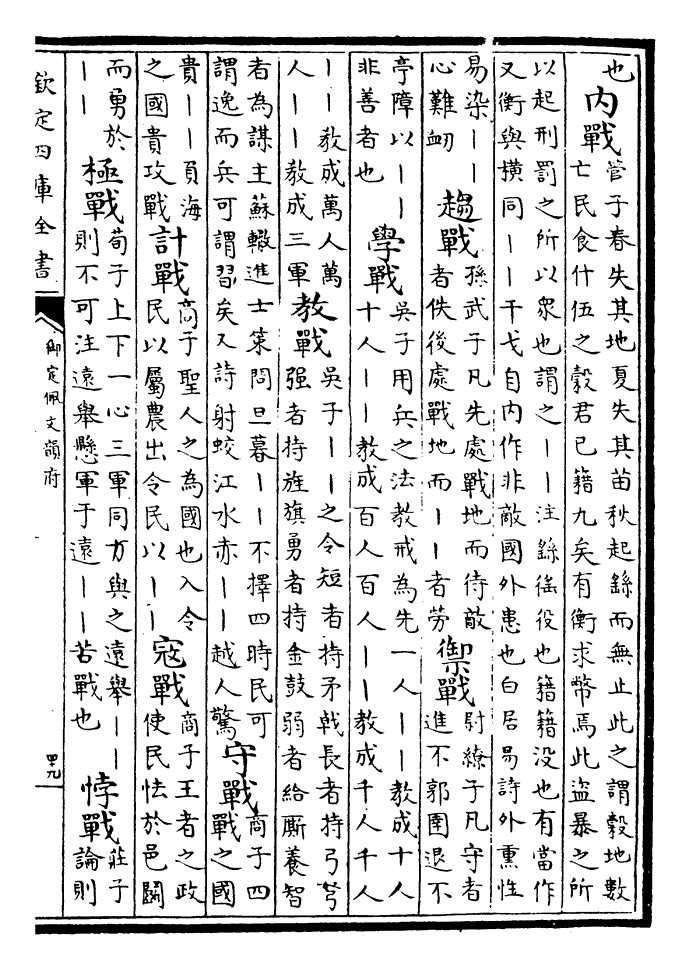 也
內戰
管子春失其地夏失其苗秋起繇而無止此之謂穀地數
亡民食什伍之穀君已籍九矣有衡求幣焉此盜暴之所
以起刑罰之所以衆也謂之丨丨注繇徭役也籍籍没也有當作
又衡與橫同丨丨干戈自內作非敵國外患也白居易詩外熏性
易染丨丨
心難衂
趨戰
孫武子凡先處戰地而待敵
者佚後處戰地而丨丨者勞
禦戰
尉繚子凡守者
進不郭圉退不
亭障以丨丨
非善者也
學戰
吳子用兵之法教戒為先一人丨丨教成十人
十人丨丨教成百人百人丨丨教成千人千人
丨丨教成萬人萬
人丨丨教成三軍
教戰
吳子丨丨之令短者持矛戟長者持弓弩
强者持旌旗勇者持金鼓弱者給厮養智
者為謀主蘇轍進士策問旦暮丨丨不擇四時民可
謂逸而兵可謂習矣又詩射蛟江水赤丨丨越人驚
守戰
商子四
戰之國
貴丨丨負海
之國貴攻戰
計戰
商子聖人之為國也入令
民以屬農出令民以丨丨
寇戰
商子王者之政
使民怯於邑鬭
而勇於
丨丨
極戰
荀子上下一心三軍同力與之遠舉丨丨
則不可注遠舉懸軍于遠丨丨苦戰也
悖戰
莊子
論則
欽定四庫全書
御定佩文韻府
四九